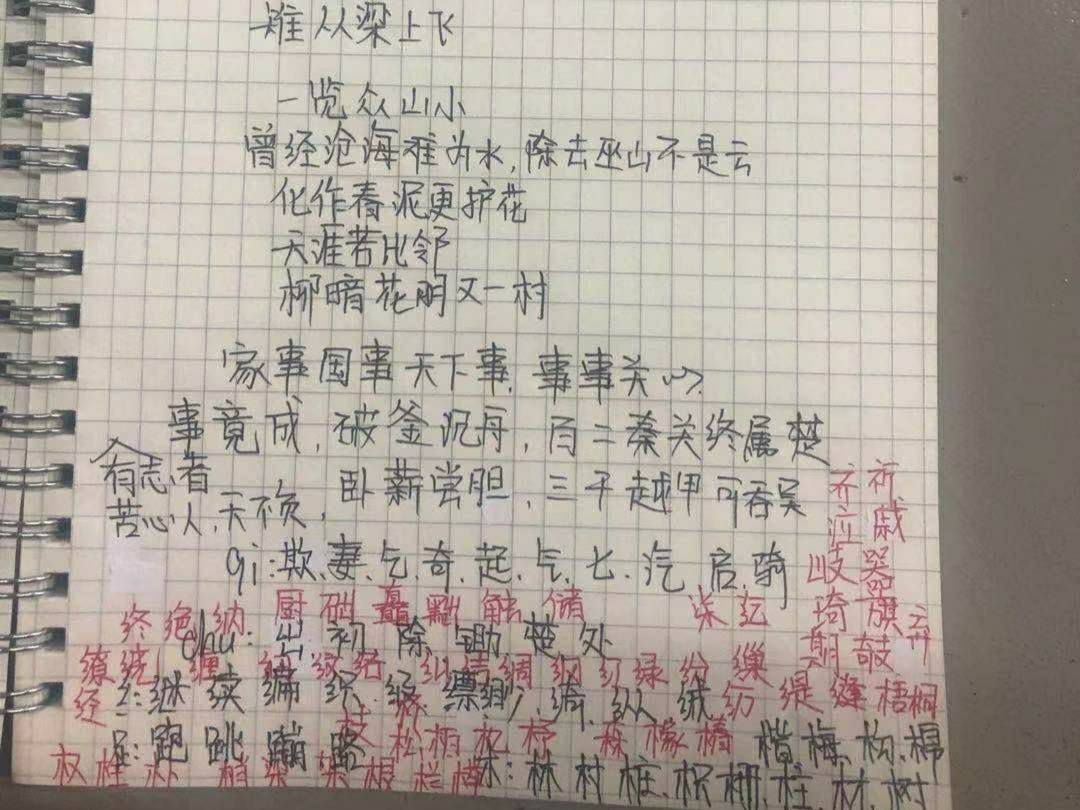 难从梁上飞
一览众山小
曾经沧海难为水,除去巫山不是云
化作春泥更护花
天涯若比邻
柳暗花明又一村
家事国事天下事,事事关心
事竟成,破釜沉舟,百二秦关终属楚
有志者
苦心人,天不负,卧薪尝胆,三千越甲可吞吴
齐 祈
泣 戚
qi:欺.妻.乞.奇.起.气.七.汽.启.骑
歧 器
厨 础 矗 黜 触 储
柒 讫 琦 旗 弃
终 绝 纳
chu:出.初.除.锄.楚.处
期 鼓
缭 绕 缠 络 纠 结 绸 纲 红 绿 纷 巢
经
纟:继 续 编 织 级 缥缈 绮 纵 绒 纺 缇 缝 梧桐
⻊:跑 跳 蹦 路
松 柏 杉 森 橡 椿
楷 梅 构 棉
权 桂 朴 梢 染 梁 根 栏 樽
木:林 村 桩 枳 栅 柱 材 树